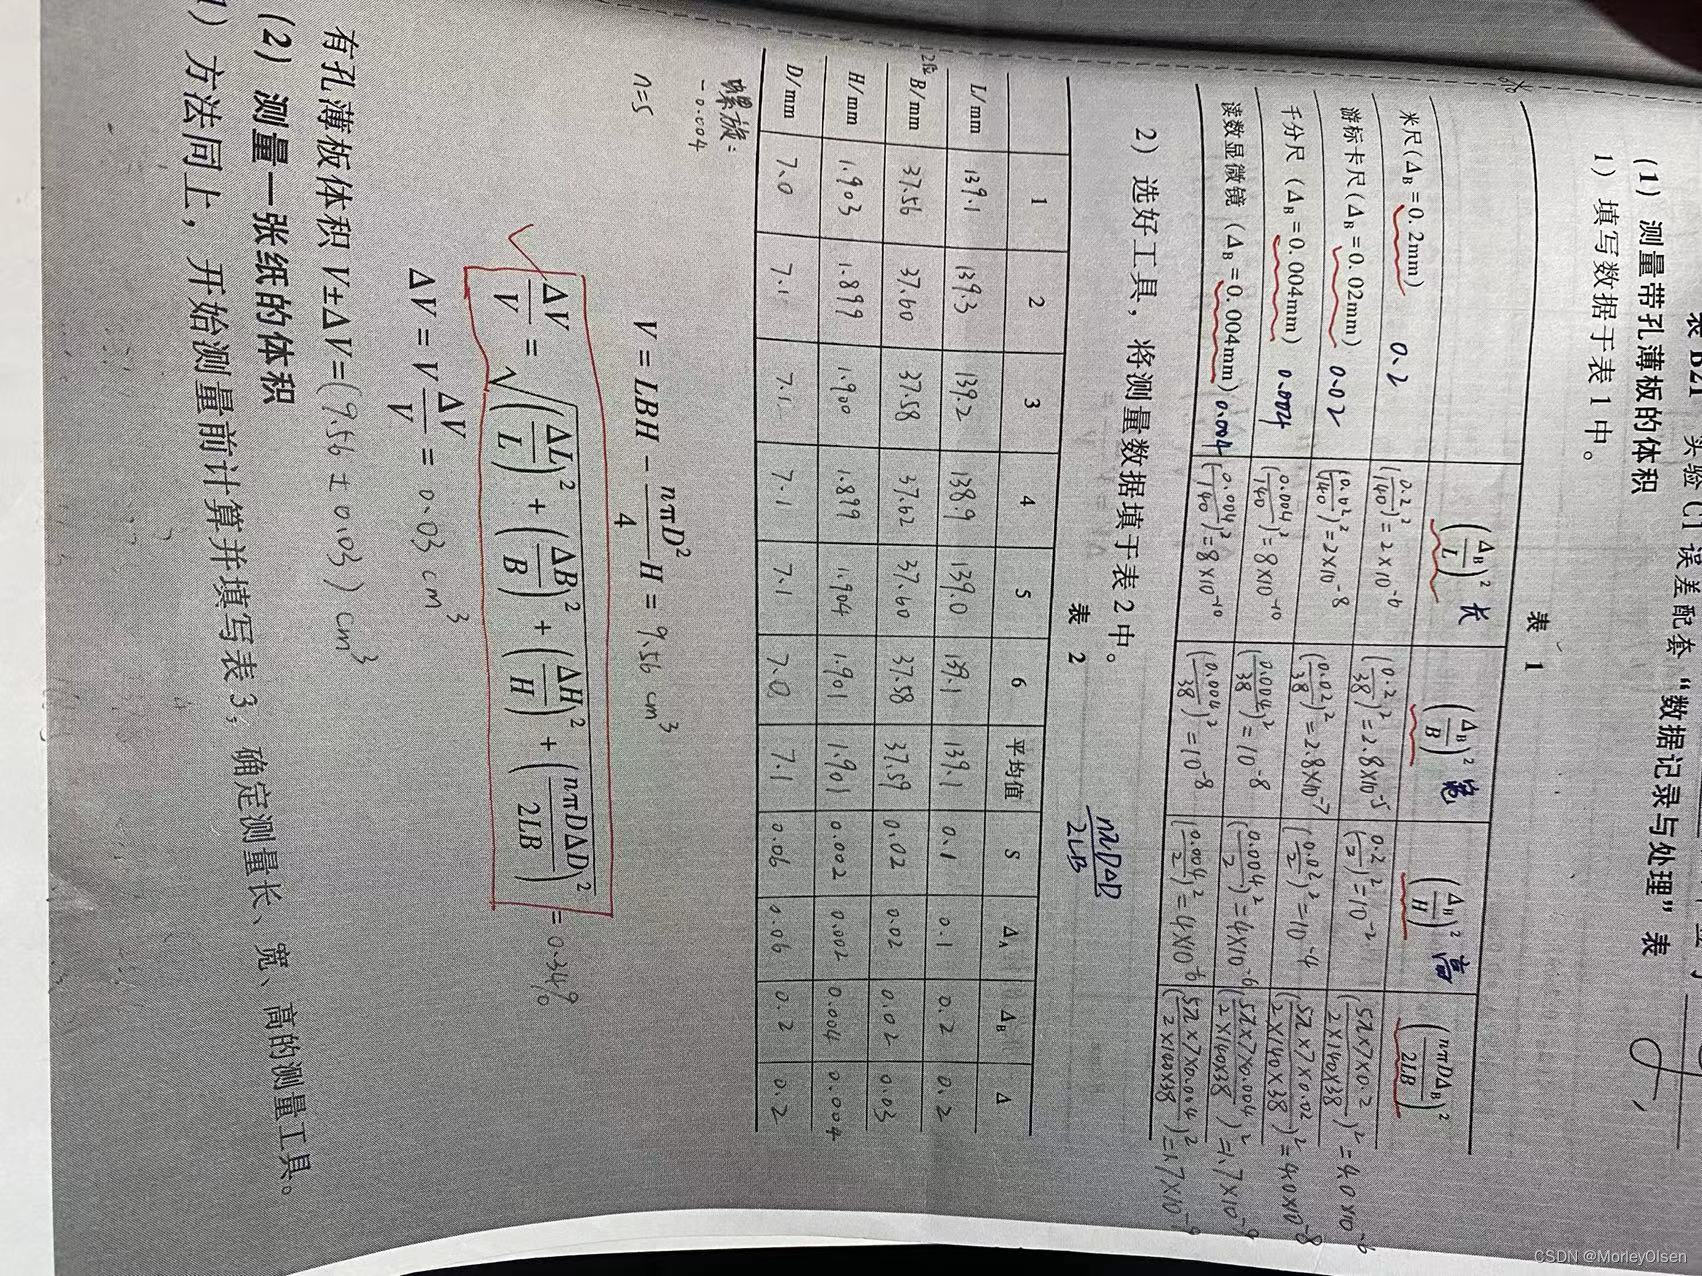 表 B21 实验 C1 误差配套“数据记录与处理”表
(1) 测量带孔薄板的体积
1) 填写数据于表 1 中。
表 1
(Δ_B/L)² 长 (Δ_B/B)² 宽 (Δ_B/H)² 高 (nπDΔ_B/2LB)²
米尺(Δ_B=0.2mm) 0.2 (0.2/140)²=2×10⁻⁶ (0.2/38)²=2.8×10⁻⁵ (0.2/2)²=10⁻² (5π×7×0.2/2×140×38)²=4.0×10⁻⁶
游标卡尺(Δ_B=0.02mm) 0.02 (0.02/140)²=2×10⁻⁸ (0.02/38)²=2.8×10⁻⁷ (0.02/2)²=10⁻⁴ (5π×7×0.02/2×140×38)²=4.0×10⁻⁸
千分尺(Δ_B=0.004mm) 0.004 (0.004/140)²=8×10⁻¹⁰ (0.004/38)²=10⁻⁸ (0.004/2)²=4×10⁻⁶ (5π×7×0.004/2×140×38)²=1.7×10⁻⁹
读数显微镜(Δ_B=0.004mm) 0.004 (0.004/140)²=8×10⁻¹⁰ (0.004/38)²=10⁻⁸ (0.004/2)²=4×10⁻⁶ (5π×7×0.004/2×140×38)²=1.7×10⁻⁹
2) 选好工具，将测量数据填于表 2 中。
nπDΔD/2LB
表 2
1 2 3 4 5 6 平均值 S Δ_A Δ_B Δ
L/mm 139.1 139.3 139.2 138.9 139.0 139.1 139.1 0.1 0.1 0.2 0.2
2位 B/mm 37.56 37.60 37.58 37.62 37.60 37.58 37.59 0.02 0.02 0.02 0.03
H/mm 1.903 1.899 1.900 1.899 1.904 1.901 1.901 0.002 0.002 0.004 0.004
D/mm 7.0 7.1 7.1 7.1 7.1 7.0 7.1 0.06 0.06 0.2 0.2
螺旋:
-0.004
n=5
V=LBH-nπD²/4 H=9.56 cm³
ΔV/V=√((ΔL/L)²+(ΔB/B)²+(ΔH/H)²+(nπDΔD/2LB)²)=0.34%
ΔV=V ΔV/V=0.03 cm³
有孔薄板体积 V±ΔV=(9.56 ± 0.03) cm³
(2) 测量一张纸的体积
1) 方法同上，开始测量前计算并填写表 3，确定测量长、宽、高的测量工具。
CSDN @MorleyOlsen